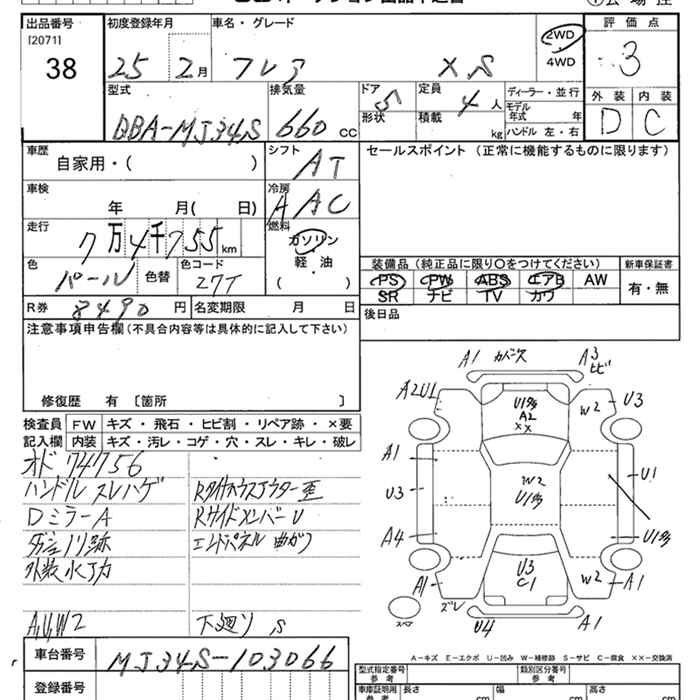 出品番号 初度登録年月 車名・グレード 評価点
[20711]
38 25 2月 フレア XS 2WD 4WD 3
型式 排気量 ドア 定員 ディーラー・並行 外装 内装
DBA-MJ34S 660 cc 5 4人 モデル年式 年 D C
形状 積載 kg ハンドル 左・右
車歴 シフト セールスポイント (正常に機能するものに限ります)
自家用・( ) AT
車検 冷房
年 月( 日) AAC
走行 燃料
7万4千755km ガソリン
軽・油
色 色替 色コード ( )
パール 27T
装備品 (純正品に限り〇をつけてください) 新車保証書
PS PW ABS エアB AW 有・無
SR ナビ TV カワ
R券 8490円 名変期限 月 日 後日品
注意事項申告欄(不具合内容等は具体的に記入して下さい)
修復歴 有 [箇所 ]
検査員 FW キズ・飛石・ヒビ割・リペア跡・×要
記入欄 内装 キズ・汚レ・コゲ・穴・スレ・キレ・破レ
オド 74756
ハンドル スレハゲ
Dミラー A
RサイドメンバーU
エンドパネル 曲がり
A,U,W2 下廻り S
A1 カバーズ A3 ヒビ
A2U1 U1 A2 XX W2 U3
A1 W2 U1
U3 U1
A4 U1
A1 U3 C1 W2 A1
ズレ U4 A1
スペア
A-キズ E-エクボ U-凹み W-補修跡 S-サビ C-腐食 ××-交換済
車台番号 MJ34S-103066
登録番号
型式指定番号 類別区分番号
車庫証明用 参考 長さ cm 幅 cm 高さ cm